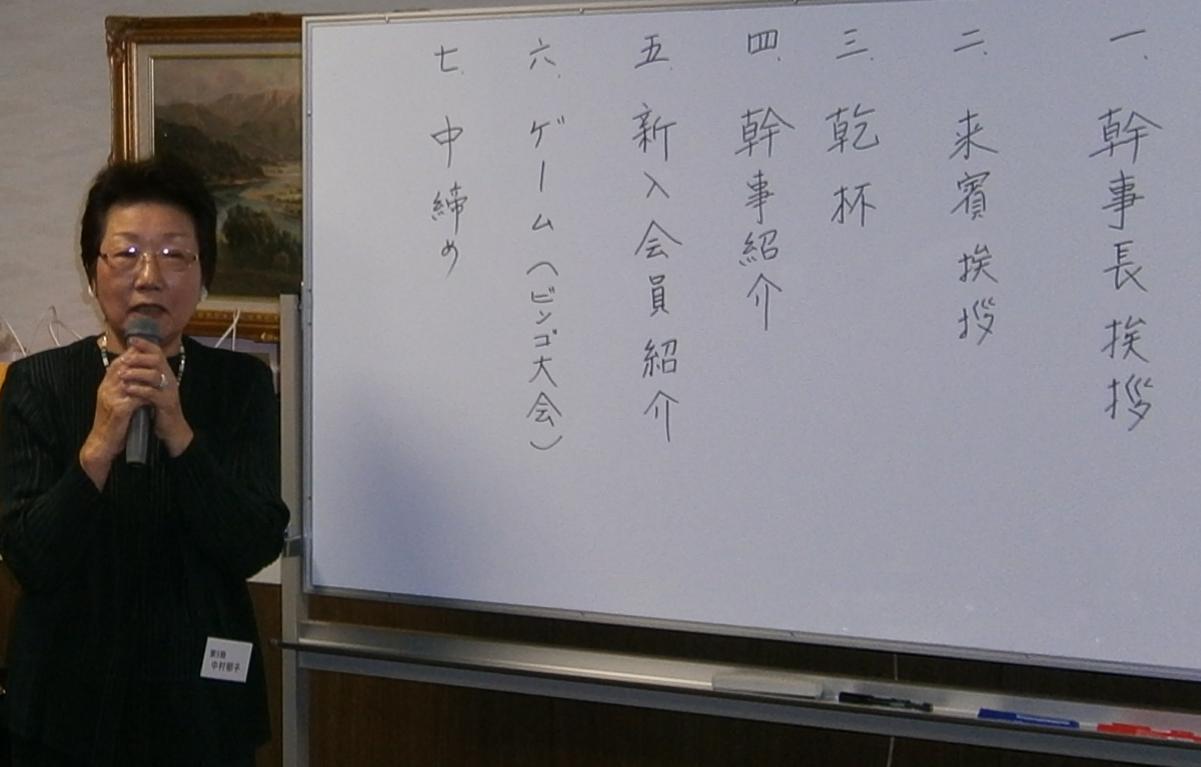 一、幹事長挨拶
二、来賓挨拶
三、乾杯
四、幹事紹介
五、新入会員紹介
六、ゲーム（ビンゴ大会）
七、中締め
中村郁子